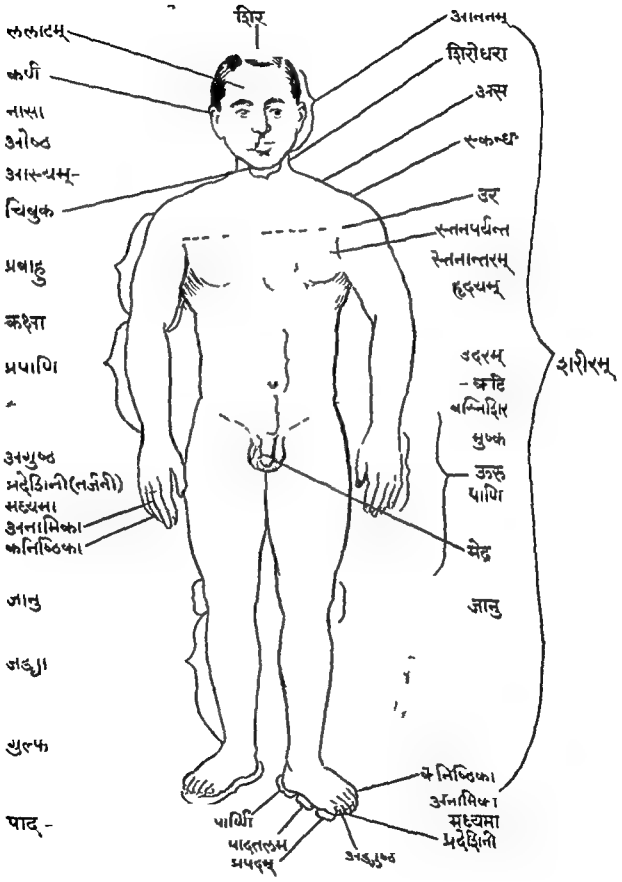 शिर
ललाटम्
कर्ण
नासा
ओष्ठ
आस्यम्-
चिबुक
प्रबाहु
कक्षा
प्रपाणि
अगुष्ठ
प्रदेशिनी (तर्जनी)
मध्यमा
अनामिका
कनिष्ठिका
जानु
जङ्घा
गुल्फ
पाद-
आननम्
शिरोधरा
अस
स्कन्ध
उर
स्तनपर्यन्त
स्तनान्तरम्
हृदयम्
उदरम्
-कटि
बस्तिशिर
मुष्क
ऊरु
पाणि
मेद्र
जानु
शरीरम्
कनिष्ठिका
अनामिका
मध्यमा
प्रदेशिनी
पार्ष्णि
पादतलम
प्रपदम्
अङ्गुष्ठ